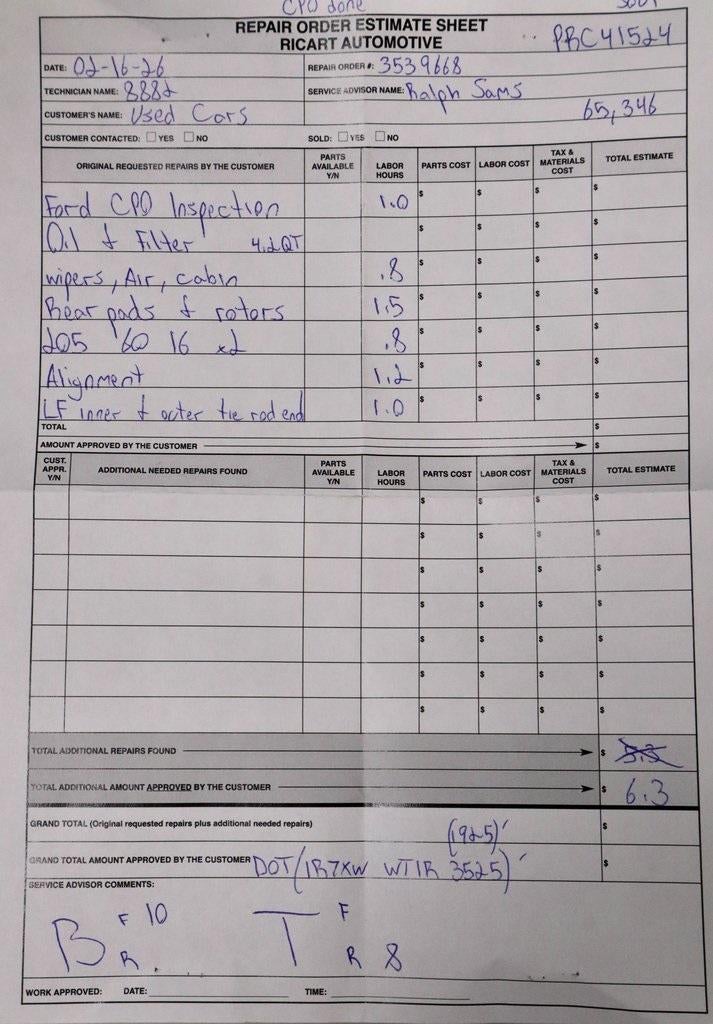 CPO done
REPAIR ORDER ESTIMATE SHEET
RICART AUTOMOTIVE
PRC41524
DATE: 02-16-26
REPAIR ORDER #: 3539668
TECHNICIAN NAME: 8882
SERVICE ADVISOR NAME: Ralph Sams
CUSTOMER'S NAME: Used Cars
65,346
CUSTOMER CONTACTED: YES NO
SOLD: YES NO
ORIGINAL REQUESTED REPAIRS BY THE CUSTOMER PARTS AVAILABLE Y/N LABOR HOURS PARTS COST LABOR COST TAX & MATERIALS COST TOTAL ESTIMATE
Ford CPO Inspection 1.0 $ $ $ $
Oil & Filter 4.2QT $ $ $ $
wipers, Air, cabin .8 $ $ $ $
Rear pads & rotors 1.5 $ $ $ $
205 60 16 x2 .8 $ $ $ $
Alignment 1.2 $ $ $ $
LF inner & outer tie rod end 1.0 $ $ $ $
TOTAL $
AMOUNT APPROVED BY THE CUSTOMER $
CUST. APPR. Y/N ADDITIONAL NEEDED REPAIRS FOUND PARTS AVAILABLE Y/N LABOR HOURS PARTS COST LABOR COST TAX & MATERIALS COST TOTAL ESTIMATE
$ $ $ $
$ $ $ $
$ $ $ $
$ $ $ $
$ $ $ $
$ $ $ $
$ $ $ $
TOTAL ADDITIONAL REPAIRS FOUND $
TOTAL ADDITIONAL AMOUNT APPROVED BY THE CUSTOMER $ 6.3
GRAND TOTAL (Original requested repairs plus additional needed repairs) (1925) $
GRAND TOTAL AMOUNT APPROVED BY THE CUSTOMER DOT (1R7XW WT1R 3525) $
SERVICE ADVISOR COMMENTS:
B F 10 T F
R R 8
WORK APPROVED: DATE: TIME: